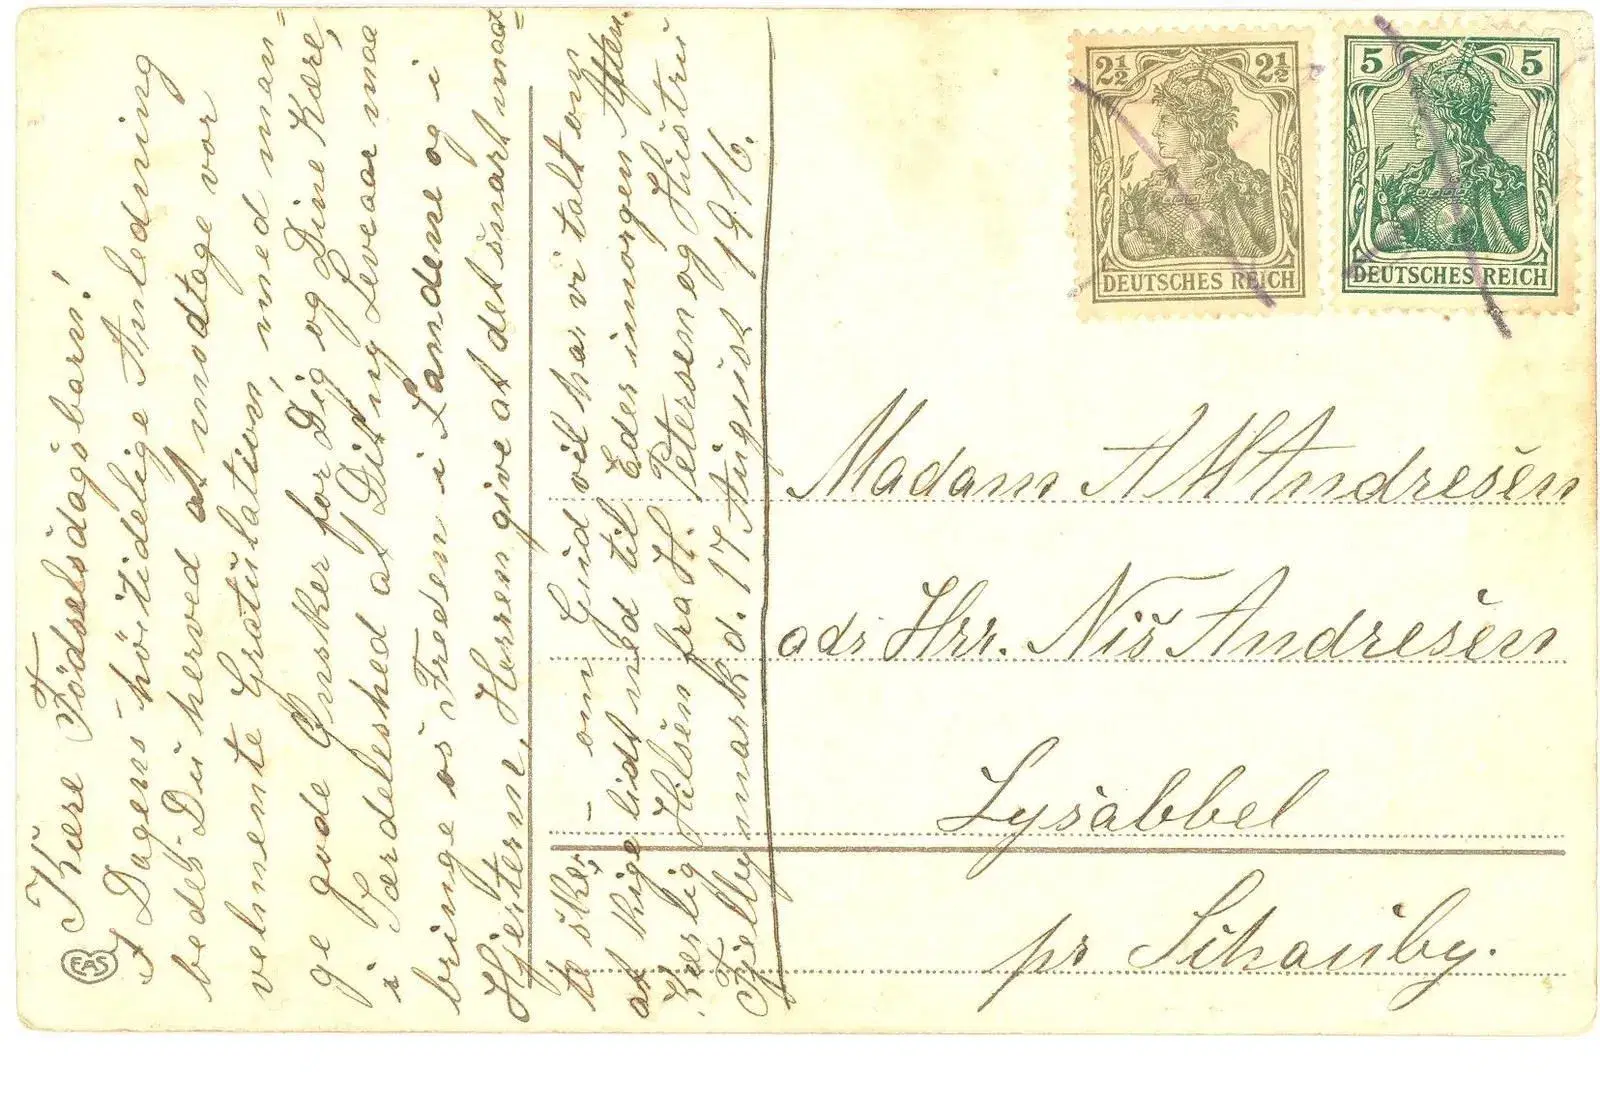 Kære Födselsdagsbarn!
I Dagens höitidelige Anledning
bedes Du herved at modtage vor
velmente Gratulation, med man=
ge gode Önsker for Dig og Dine Kære,
i Særdeleshed at Dit ny Leveaar maa
bringe os Freden i Landene og i
Hjertene, Herren give at det snart maa=
te ske, – om Gud vil har vi talt om
at kige lidt ned til Eder imorgen Aften.
Kjerlig Hilsen fra H. Petersen og Hustru
Fjelbymark d. 17 August 1916.
EAS
2½ 2½
DEUTSCHES REICH
5 5
DEUTSCHES REICH
Madam A M Andresen
adr Hrr. Nis Andresen
Lysabbel
pr Schauby.